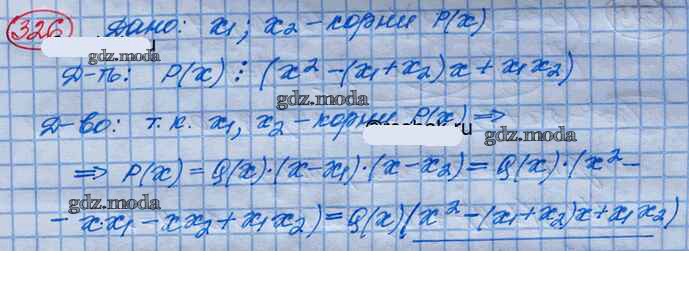 326 Дано: x₁; x₂ – корни P(x)
Д-ть: P(x) ⋮ (x² – (x₁ + x₂)x + x₁x₂)
gdz.moda
Д-во: т.к. x₁, x₂ – корни P(x) ⇒
gdz.moda
ru
⇒ P(x) = Q(x)·(x – x₁)·(x – x₂) = Q(x)·(x² –
gdz.moda
– x·x₁ – xx₂ + x₁x₂) = Q(x)(x² – (x₁ + x₂)x + x₁x₂)